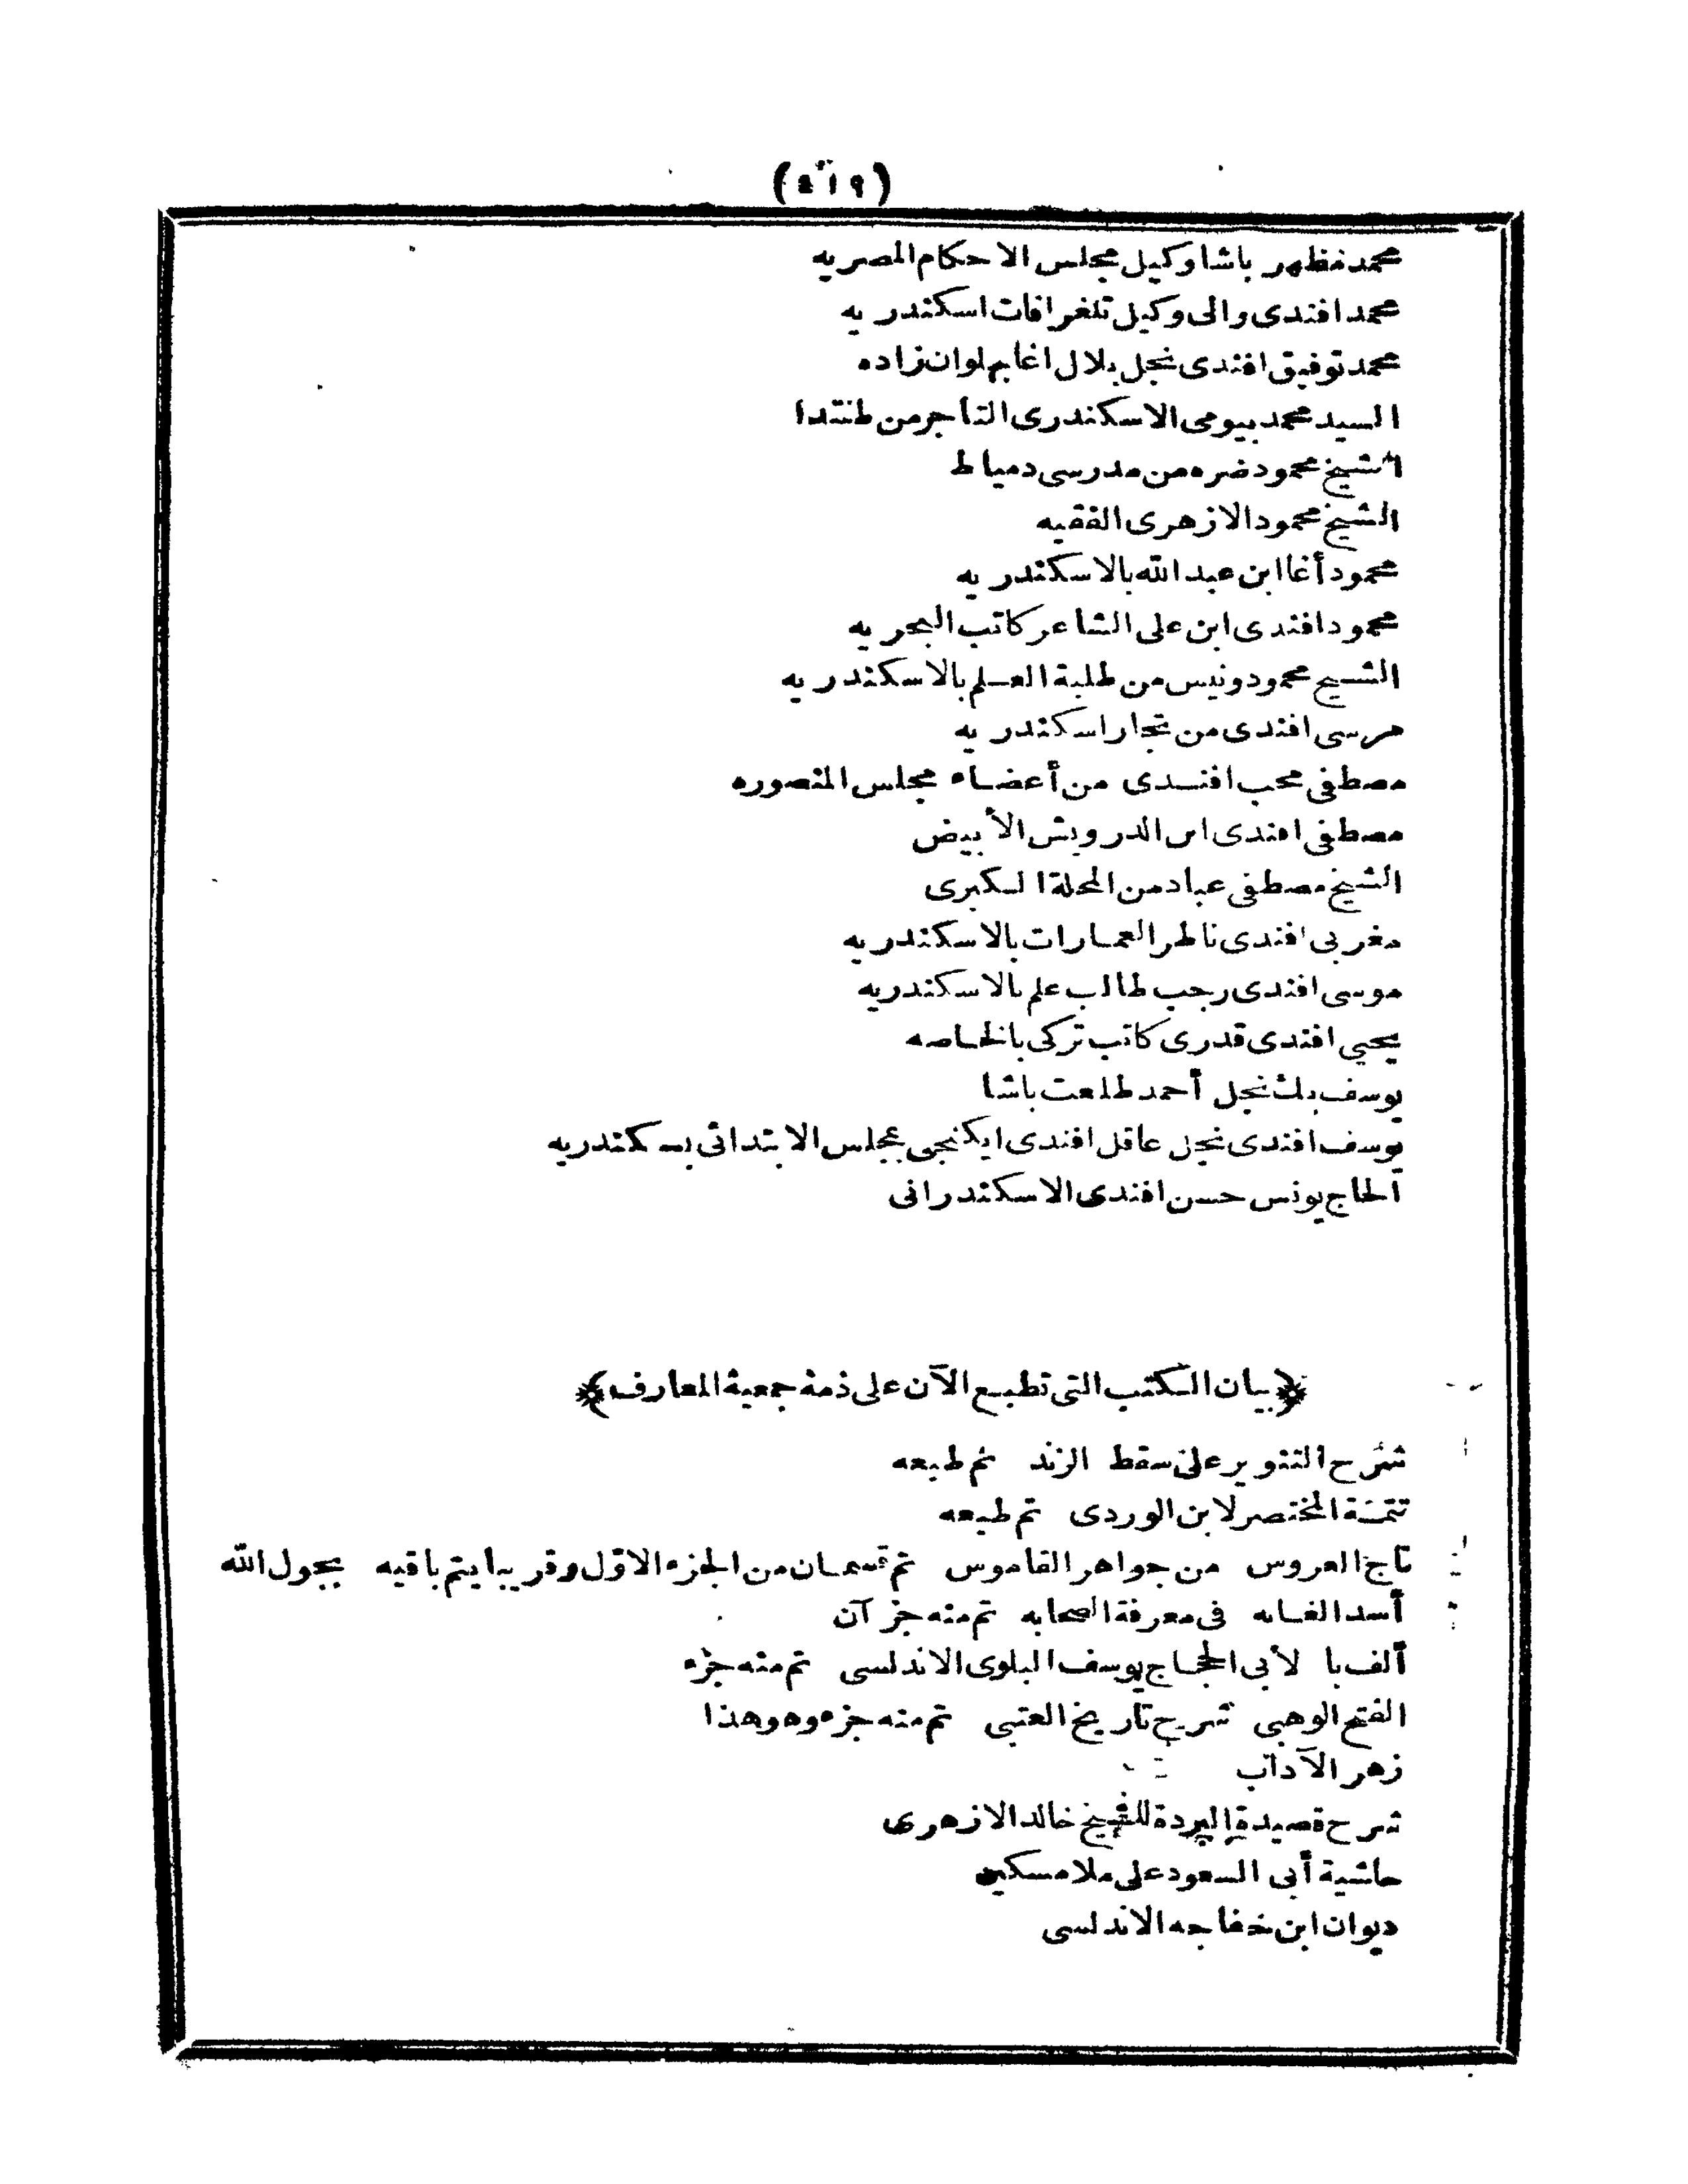 (٤١٩)
محمد مظهر باشا وكيل مجلس الاحكام المصريه
محمد افندى والى وكيل تلغرافات اسكندريه
محمد توفيق افندى نجل بلال اغا بهلوان زاده
السيد محمد بيومى الاسكندرى التاجر من طنتدا
الشيخ محمود ضره من مدرسى دمياط
الشيخ محمود الازهرى الفقيه
محمود أغا ابن عبد الله بالاسكندريه
محمود افندى ابن على الشاعر كاتب البحريه
الشيخ محمود ونيس من طلبة العلم بالاسكندريه
مرسى افندى من تجار اسكندريه
مصطفى محب افندى من أعضاء مجلس المنصوره
مصطفى افندى ابن الدرويش الأبيض
الشيخ مصطفى عباد من المحلة الكبرى
مغربى افندى ناظر العمارات بالاسكندريه
موسى افندى رجب طالب علم بالاسكندريه
يحيى افندى قدرى كاتب تركى بالخاصه
يوسف بك نجل أحمد طلعت باشا
يوسف افندى نجل عاقل افندى ايكنجى بمجلس الابتدائى بسكندريه
الحاج يونس حسن افندى الاسكندرانى
﴿بيان الكتب التى تطبع الآن على ذمة جمعية المعارف﴾
شرح التنوير على سقط الزند تم طبعه
تتمة المختصر لابن الوردى تم طبعه
تاج العروس من جواهر القاموس تم قسمان من الجزء الاول وقريبا يتم باقيه بحول الله
أسد الغابه فى معرفة الصحابه تم منه جزآن
ألف با لأبى الحجاج يوسف البلوى الاندلسى تم منه جزء
الفتح الوهبى شرح تاريخ العتبى تم منه جزء وهو هذا
زهر الآداب
شرح قصيدة البردة للشيخ خالد الازهرى
حاشية أبى السعود على ملا مسكين
ديوان ابن خفاجه الاندلسى